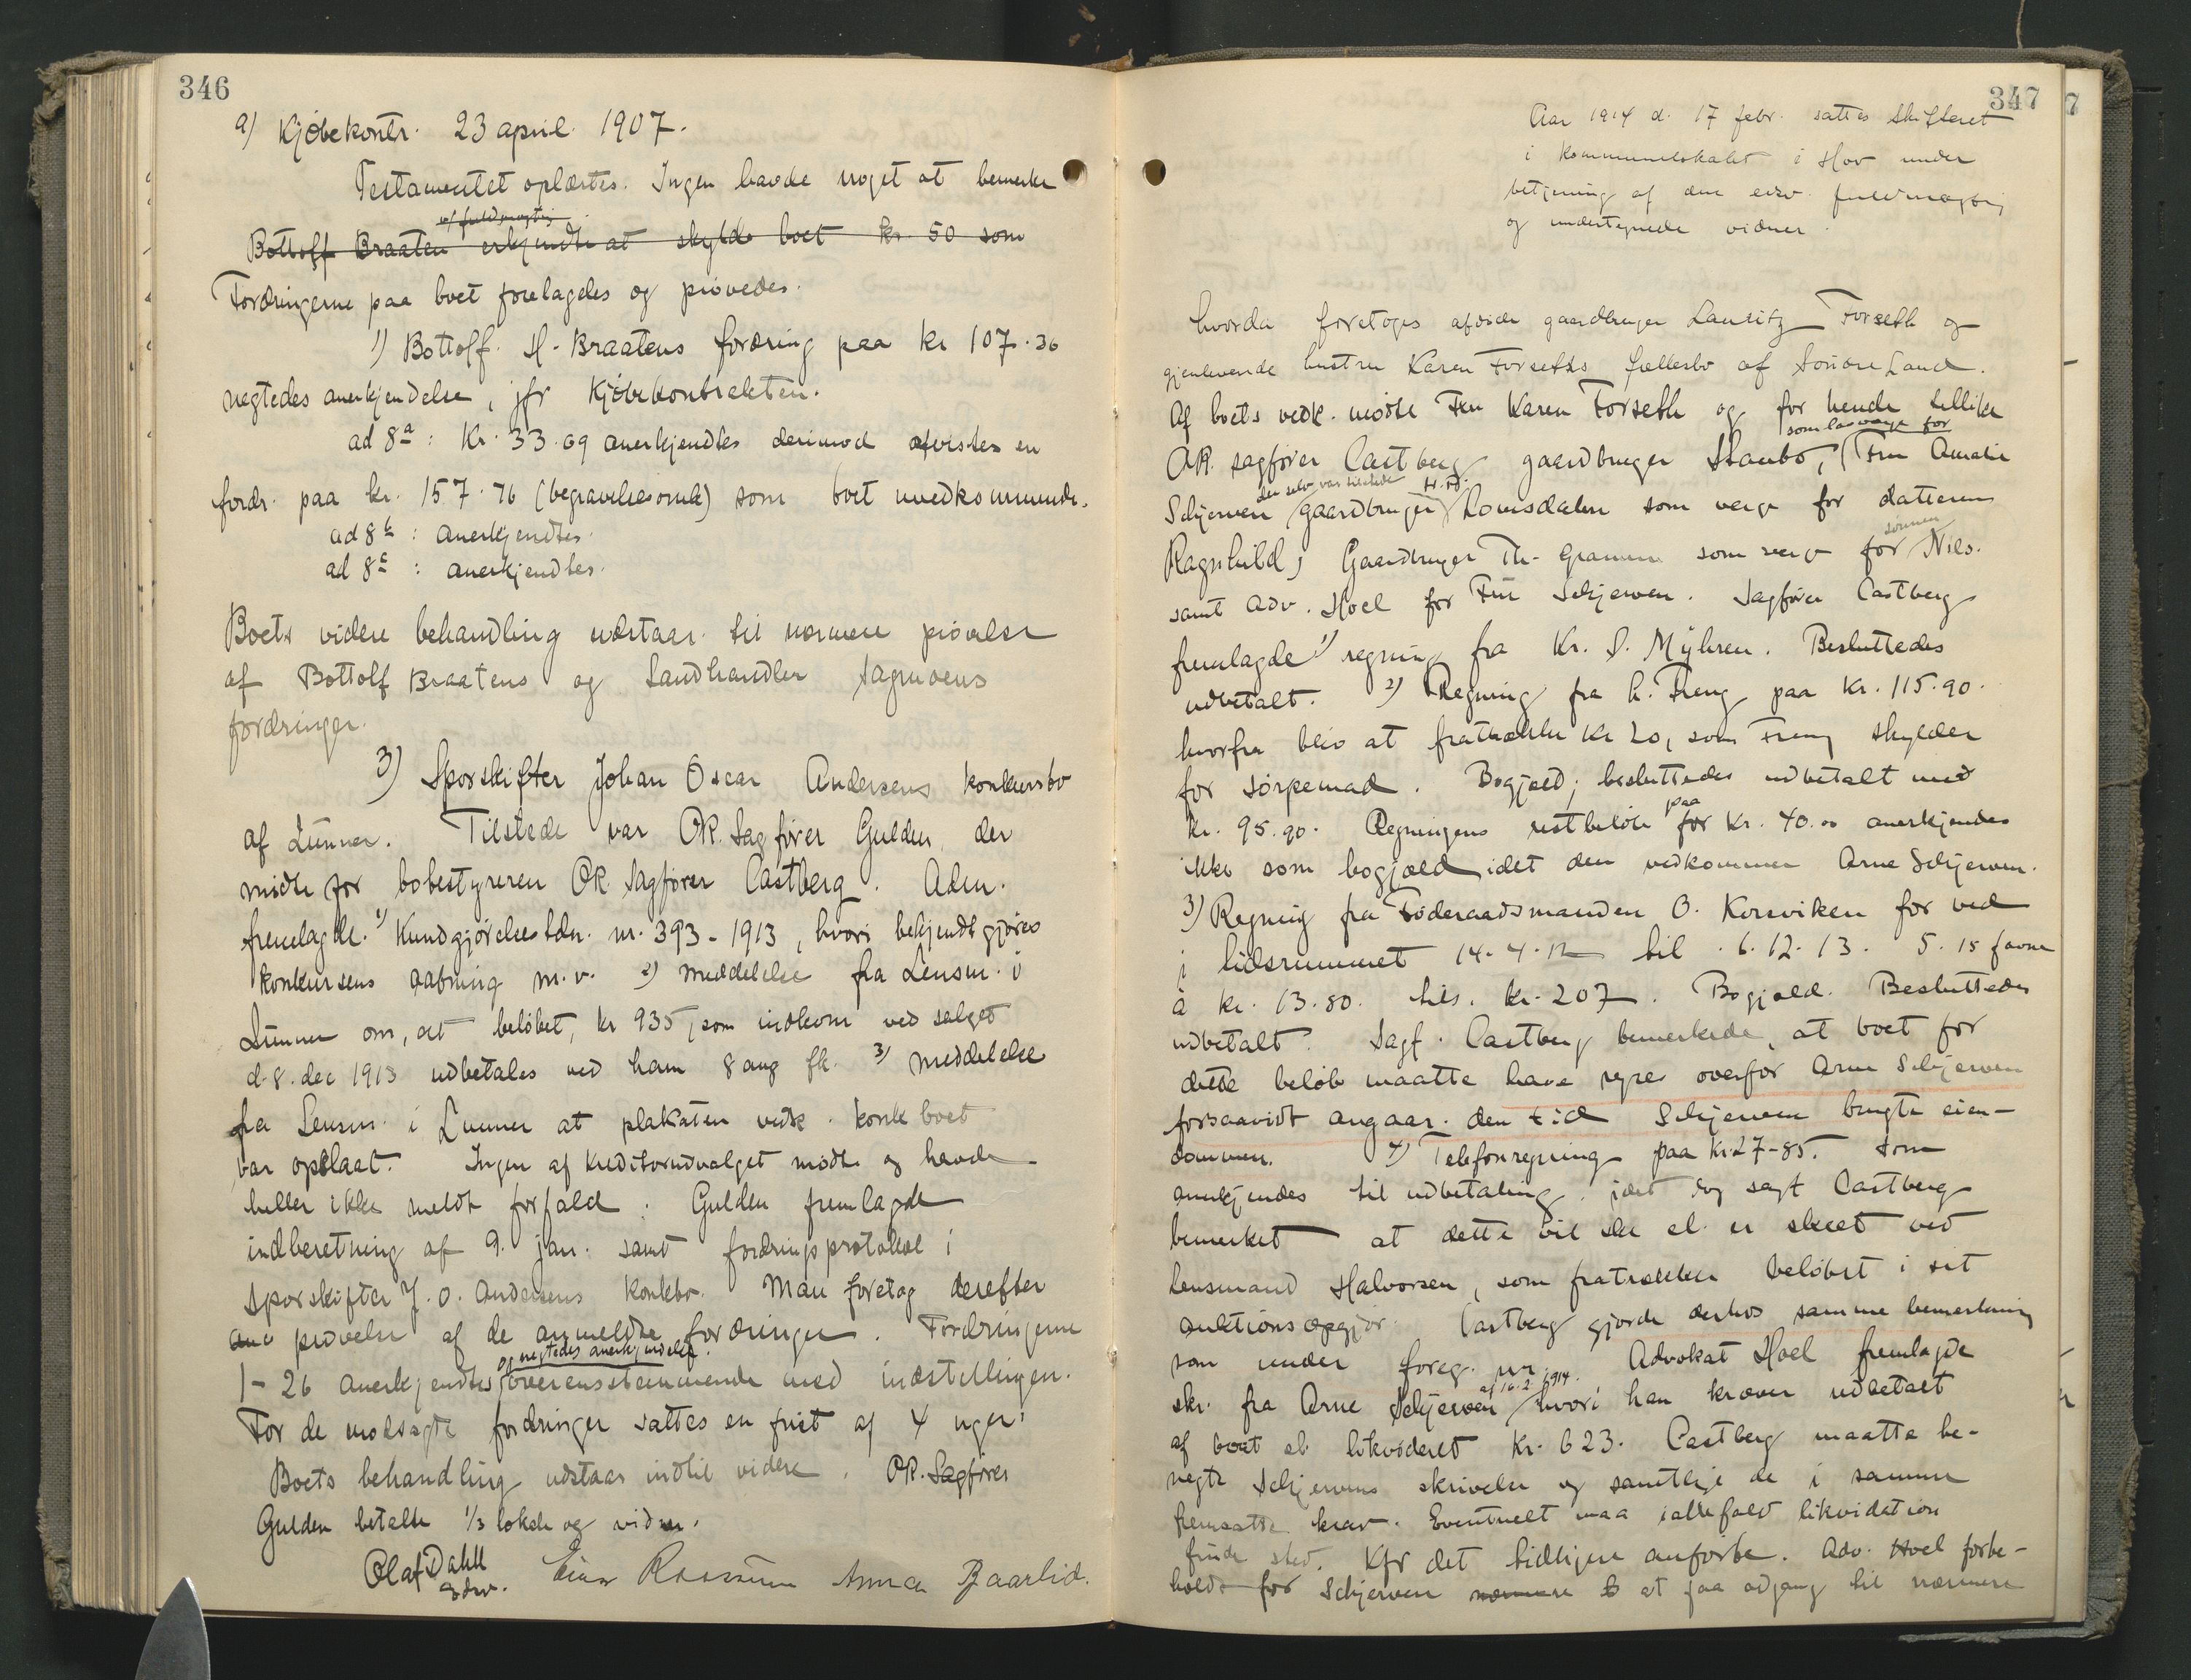 346
a) Kjøbekontr. 23 april 1907.
Testamentet oplæstes. Ingen havde noget at bemerke
v/ fuldmægtig
Bottolf Braaten erkjendte at skylde boet kr. 50 som
Fordringerne paa boet forelagdes og prøvedes.
1) Bottolf H. Braatens fordring paa kr 107.36
negtedes anerkjendelse, jfr kjøbekontrakten.
ad 8a: Kr. 33.69 anerkjendtes derimod afvistes en
fordr. paa kr. 157.76 (begravelsesomk) som boet uvedkommende.
ad 8b: anerkjendtes.
ad 8c: anerkjendtes.
Boets videre behandling udstaar til nærmere prøvelse
af Bottolf Braatens og Landhandler Sagmoens
fordringer.
3) Sporskifter Johan Oscar Andersens konkursbo
af Lunner. Tilstede var OR. Sagfører Gulden, der
mødte for bobestyreren OR. Sagfører Castberg. Adm.
fremlagde 1) Kundgjørelsestdn. nr. 393-1913, hvori bekjendtgjøres
konkursens aabning m.v. 2) meddelelse fra Lensm. i
Lunner om, at beløbet, kr 935, som indkom ved salget
d. 8. dec 1913 udbetales ved ham 8 aug fk. 3) meddelelse
fra Lensm. i Lunner at plakaten vedk. konkboet
var opslaat. Ingen af kreditorudvalget mødte og havde
heller ikke meldt forfald. Gulden fremlagde
indberetning af 9. jan. samt fordringsprotokol i
sporskifter J. O. Andersens konkbo. Man foretog derefter
prøvelse af de anmeldte fordringer. Fordringerne
og negtedes anerkjendelse
1-26 anerkjendtes overensstemmende med indstillingen.
For de modsagte fordringer sattes en frist af 4 uger.
Boets behandling udstaar indtil videre. OR. Sagfører
Gulden betalte 1/3 lokale og vidner.
Olaf Dahll
edsv. Einar Rossum Anna Baarlid.
347
Aar 1914 d. 17 febr. sattes skifteret
i kommunelokalet i Hov under
betjening af den edsv. fuldmægtig
og undertegnede vidner.
hvorda foretoges afdøde gaardbruger Lauritz Forseth og
gjenlevende hustru Karen Forseths fællesbo af Søndre Land.
Af boets vedk. mødte Fru Karen Forseth og for hende tillike
som lavværge for
OR. sagfører Castberg gaardbruger Staubo, Fru Amalie
der selv var tilstede
Schjerven gaardbruger Lomsdalen som verge for datteren
sønnen
Ragnhild, Gaardbruger Th. Gramm som verge for Nils.
samt Adv. Hoel for Fru Schjerven. Sagfører Castberg
fremlagde 1) regning fra Kr. S. Myhren. Besluttedes
udbetalt. 2) Regning fra L. Freng paa kr. 115.90.
hvorfra blev at fratrække kr 20, som Freng skylder
for sørpemad. Bogjæld; besluttedes udbetalt med
paa
kr. 95.90. Regningens restbeløb for kr. 40.00 anerkjendes
ikke som bogjæld idet den vedkommer Arne Schjerven.
3) Regning fra Føderaadsmanden O. Korsviken for ved
i tidsrummet 14.4.12 til 6.12.13. 5.15 favne
à kr. 13.80. tils. kr. 207. Bogjæld. Besluttedes
udbetalt. Sagf. Castberg bemerkede, at boet for
dette beløb maatte have regres overfor Arne Schjerven
forsaavidt angaar den tid Schjerven brugte eien-
dommen. 4) Telefonregning paa kr 27-85. som
anerkjendes til udbetaling, idet dog sagf Castberg
bemerket at dette vil ske el. er skeet ved
Lensmand Halvorsen, som fratrækker beløbet i sit
auktionsopgjør. Castberg gjorde derhos samme bemerkning
som under foreg. nr. Advokat Hoel fremlagde
af 16.2.1914.
skr. fra Arne Schjerven hvori han kræver udbetalt
af boet el. likvideret kr. 623. Castberg maatte be-
negte Schjervens skrivelse og samtlige de i samme
fremsatte krav. Eventuelt maa ialfald likvidation
finde sted. Kfr det tidligere anførte. Adv. Hoel forbe-
holdt for Schjerven at faa adgang til nærmere